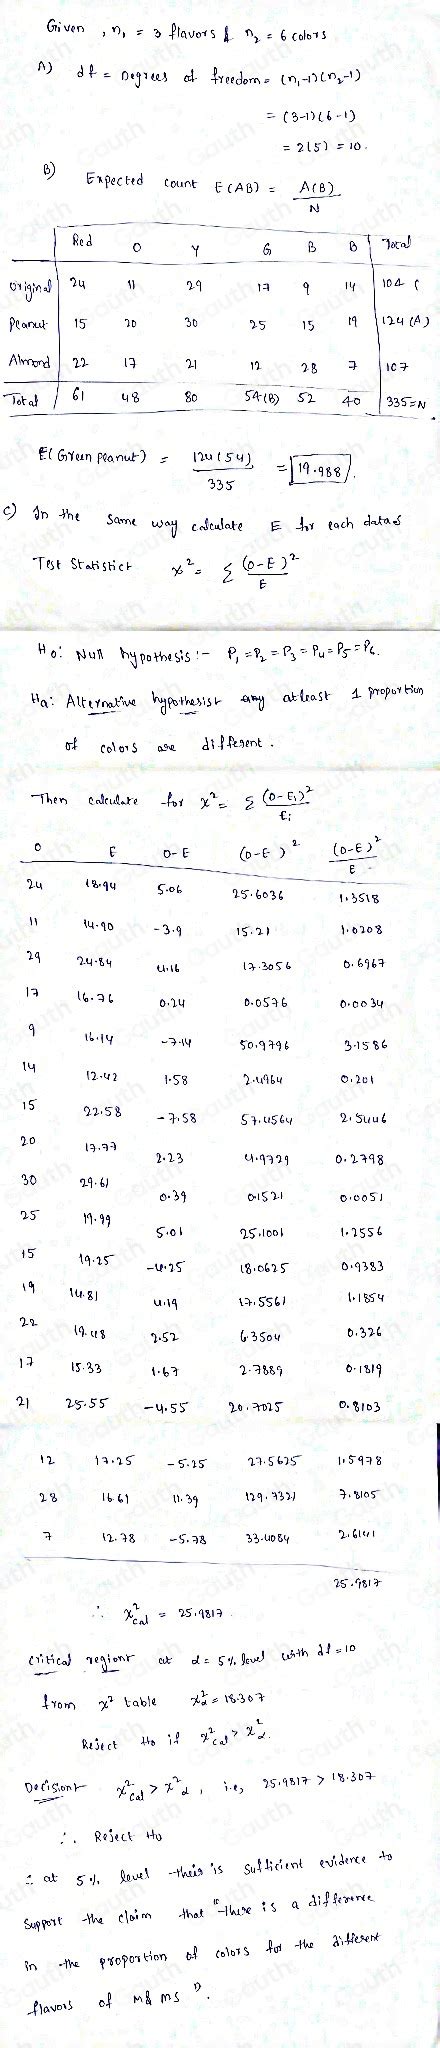 Given, n₁ = 3 flavors & n₂ = 6 colors
A) df = Degrees of freedom = (n₁-1)(n₂-1)
= (3-1)(6-1)
= 2(5) = 10.
B) Expected count E(AB) = A(B)/N
Red O Y G B B Total
original 24 11 29 17 9 14 104
Peanut 15 20 30 25 15 19 124(A)
Almond 22 17 21 12 28 7 107
Total 61 48 80 54(B) 52 40 335=N
E(Green peanut) = 124(54)/335 = 19.988.
c) In the same way calculate E for each data
Test Statistic x² = Σ (O-E)²/E
Ho: Null hypothesis:- P₁=P₂=P₃=P₄=P₅=P₆.
Ha: Alternative hypothesis atleast 1 proportion
of colors are different.
Then calculate for x² = Σ (O-Ei)²/Ei
O E O-E (O-E)² (O-E)²/E
24 18.94 5.06 25.6036 1.3518
11 14.90 -3.9 15.21 1.0208
29 24.84 4.16 17.3056 0.6967
17 16.76 0.24 0.0576 0.0034
9 16.14 -7.14 50.9796 3.1586
14 12.42 1.58 2.4964 0.201
15 22.58 -7.58 57.4564 2.5446
20 17.77 2.23 4.9729 0.2798
30 29.61 0.39 0.1521 0.0051
25 19.99 5.01 25.1001 1.2556
15 19.25 -4.25 18.0625 0.9383
19 14.81 4.19 17.5561 1.1854
22 19.48 2.52 6.3504 0.326
17 15.33 1.67 2.7889 0.1819
21 25.55 -4.55 20.7025 0.8103
12 17.25 -5.25 27.5625 1.5978
28 16.61 11.39 129.7321 7.8105
7 12.78 -5.78 33.4084 2.6141
25.9817
∴ x²cal = 25.9817.
critical region at α = 5% level with df=10
from x² table x²α = 18.307
Reject Ho if x²cal > x²α.
Decision x²cal > x²α, i.e, 25.9817 > 18.307
∴ Reject Ho
∴ at 5% level their is sufficient evidence to
support the claim that "there is a difference
in the proportion of colors for the different
flavors of M& Ms".